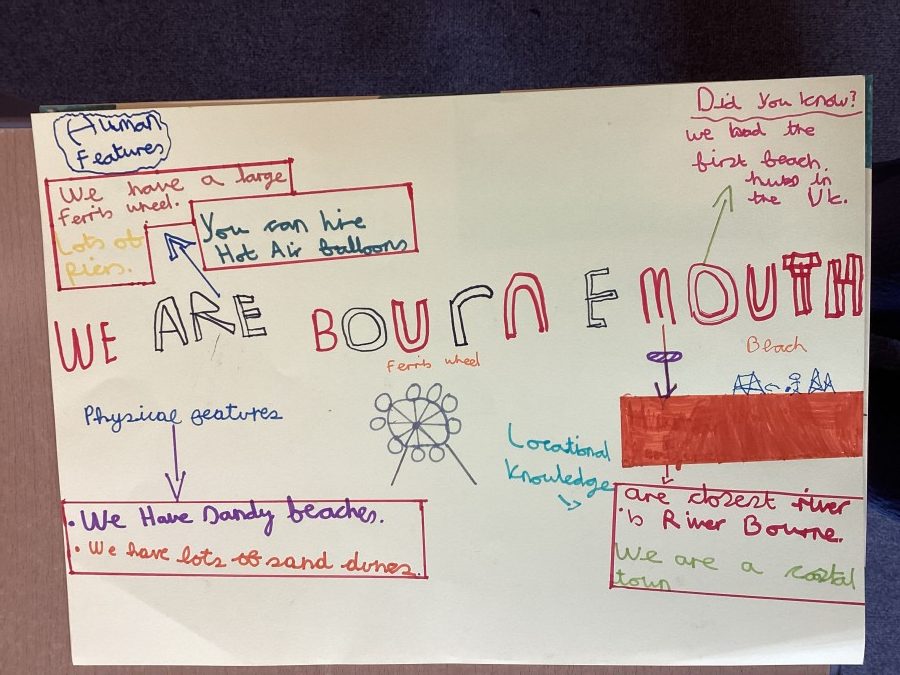 Human
Features
We have a large
Ferris wheel.
Lots of
piers.
You can hire
Hot Air balloons
Did you know?
we had the
first beach
hubs in
the Uk.
WE ARE BOURNEMOUTH
Ferris wheel
Beach
Physical features
Locational
knowledge
• We Have Sandy beaches.
• We have lots of sand dunes.
are closest river
is River Bourne.
We are a coastal
town